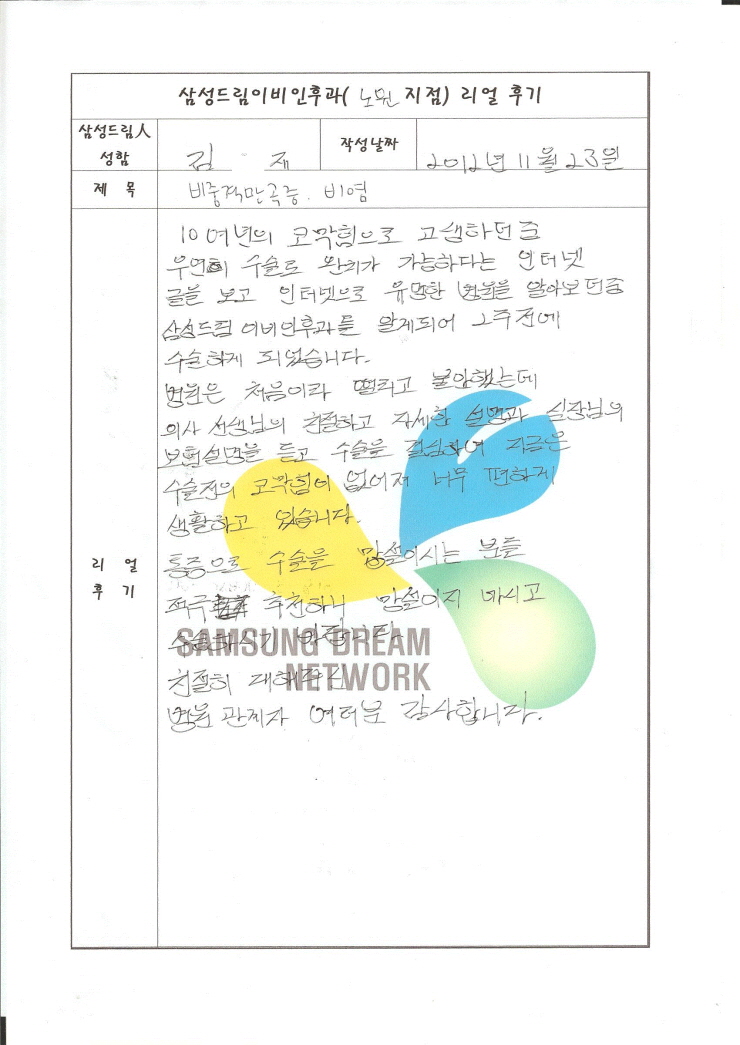 삼성드림이비인후과( 노원 지점) 리얼 후기
삼성드림人
성함
김 재
작성날짜
2012년 11월 23일
제 목
비중격만곡증. 비염
10여년의 코막힘으로 고생하던중
우연히 수술로 완치가 가능하다는 인터넷
글을 보고 인터넷으로 유명한 병원을 알아보던중
삼성드림 이비인후과를 알게되어 2주전에
수술하게 되었습니다.
병원은 처음이라 떨리고 불안했는데
의사 선생님의 친절하고 자세한 설명과 실장님의
보험설명을 듣고 수술을 결심하여 지금은
수술전의 코막힘이 없어져 너무 편하게
생활하고 있습니다.
리 얼
후 기
통증으로 수술을 망설이시는 분들
적극 추천하니 망설이지 마시고
SAMSUNG DREAM
NETWORK
친절히
병원 관계자 여러분 감사합니다.